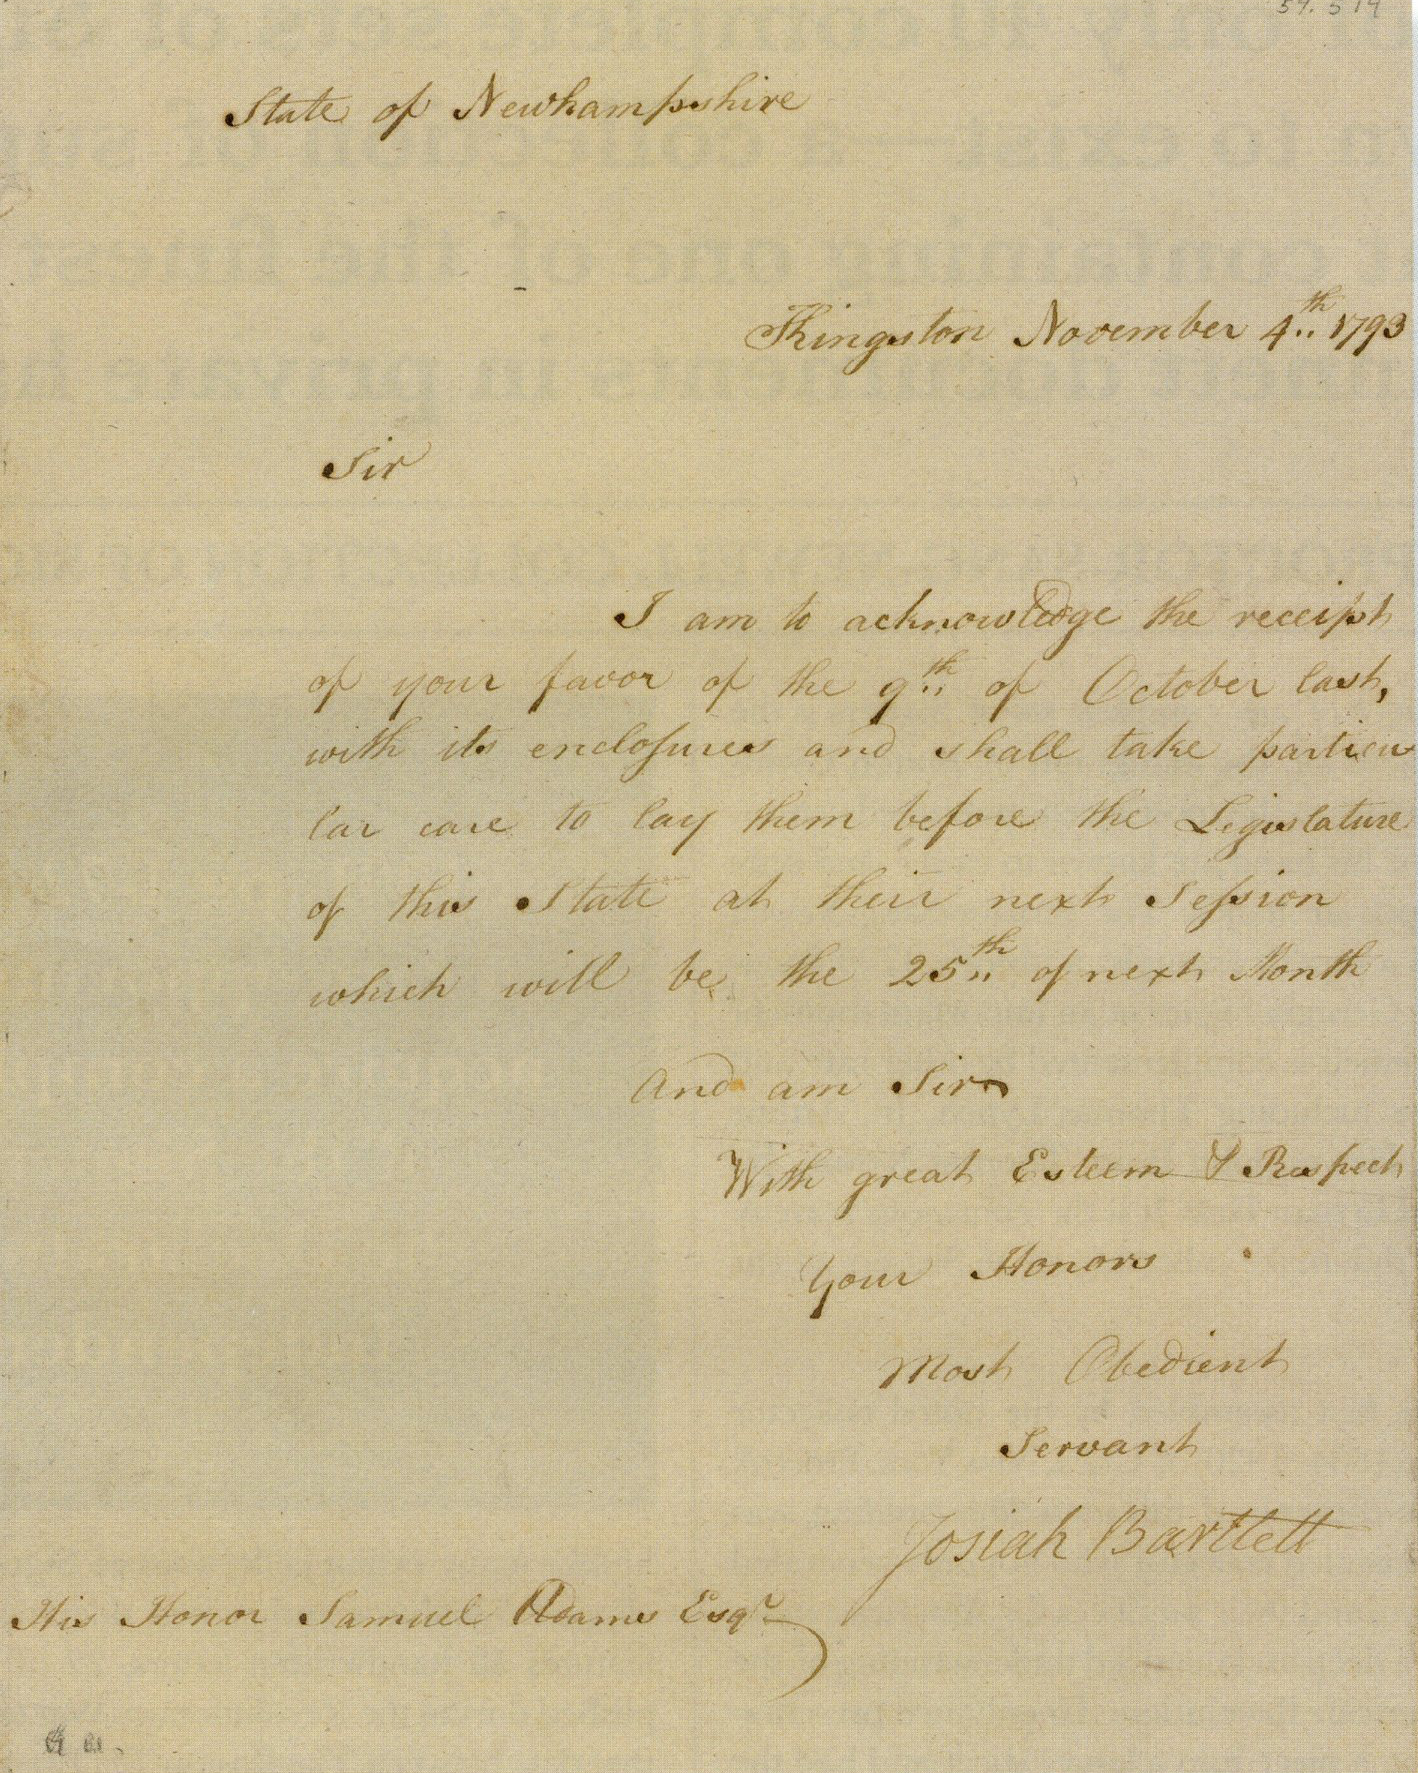 57.514
State of Newhampshire
Kingston November 4th 1793
Sir
I am to acknowledge the receipt
of your favor of the 9th of October last,
with its enclosures and shall take particu
lar care to lay them before the Legislature
of this State at their next Session
which will be the 25th of next Month
And am Sir
With great Esteem & Respect
Your Honors
Most Obedient
Servant
Josiah Bartlett
His Honor Samuel Adams Esqr